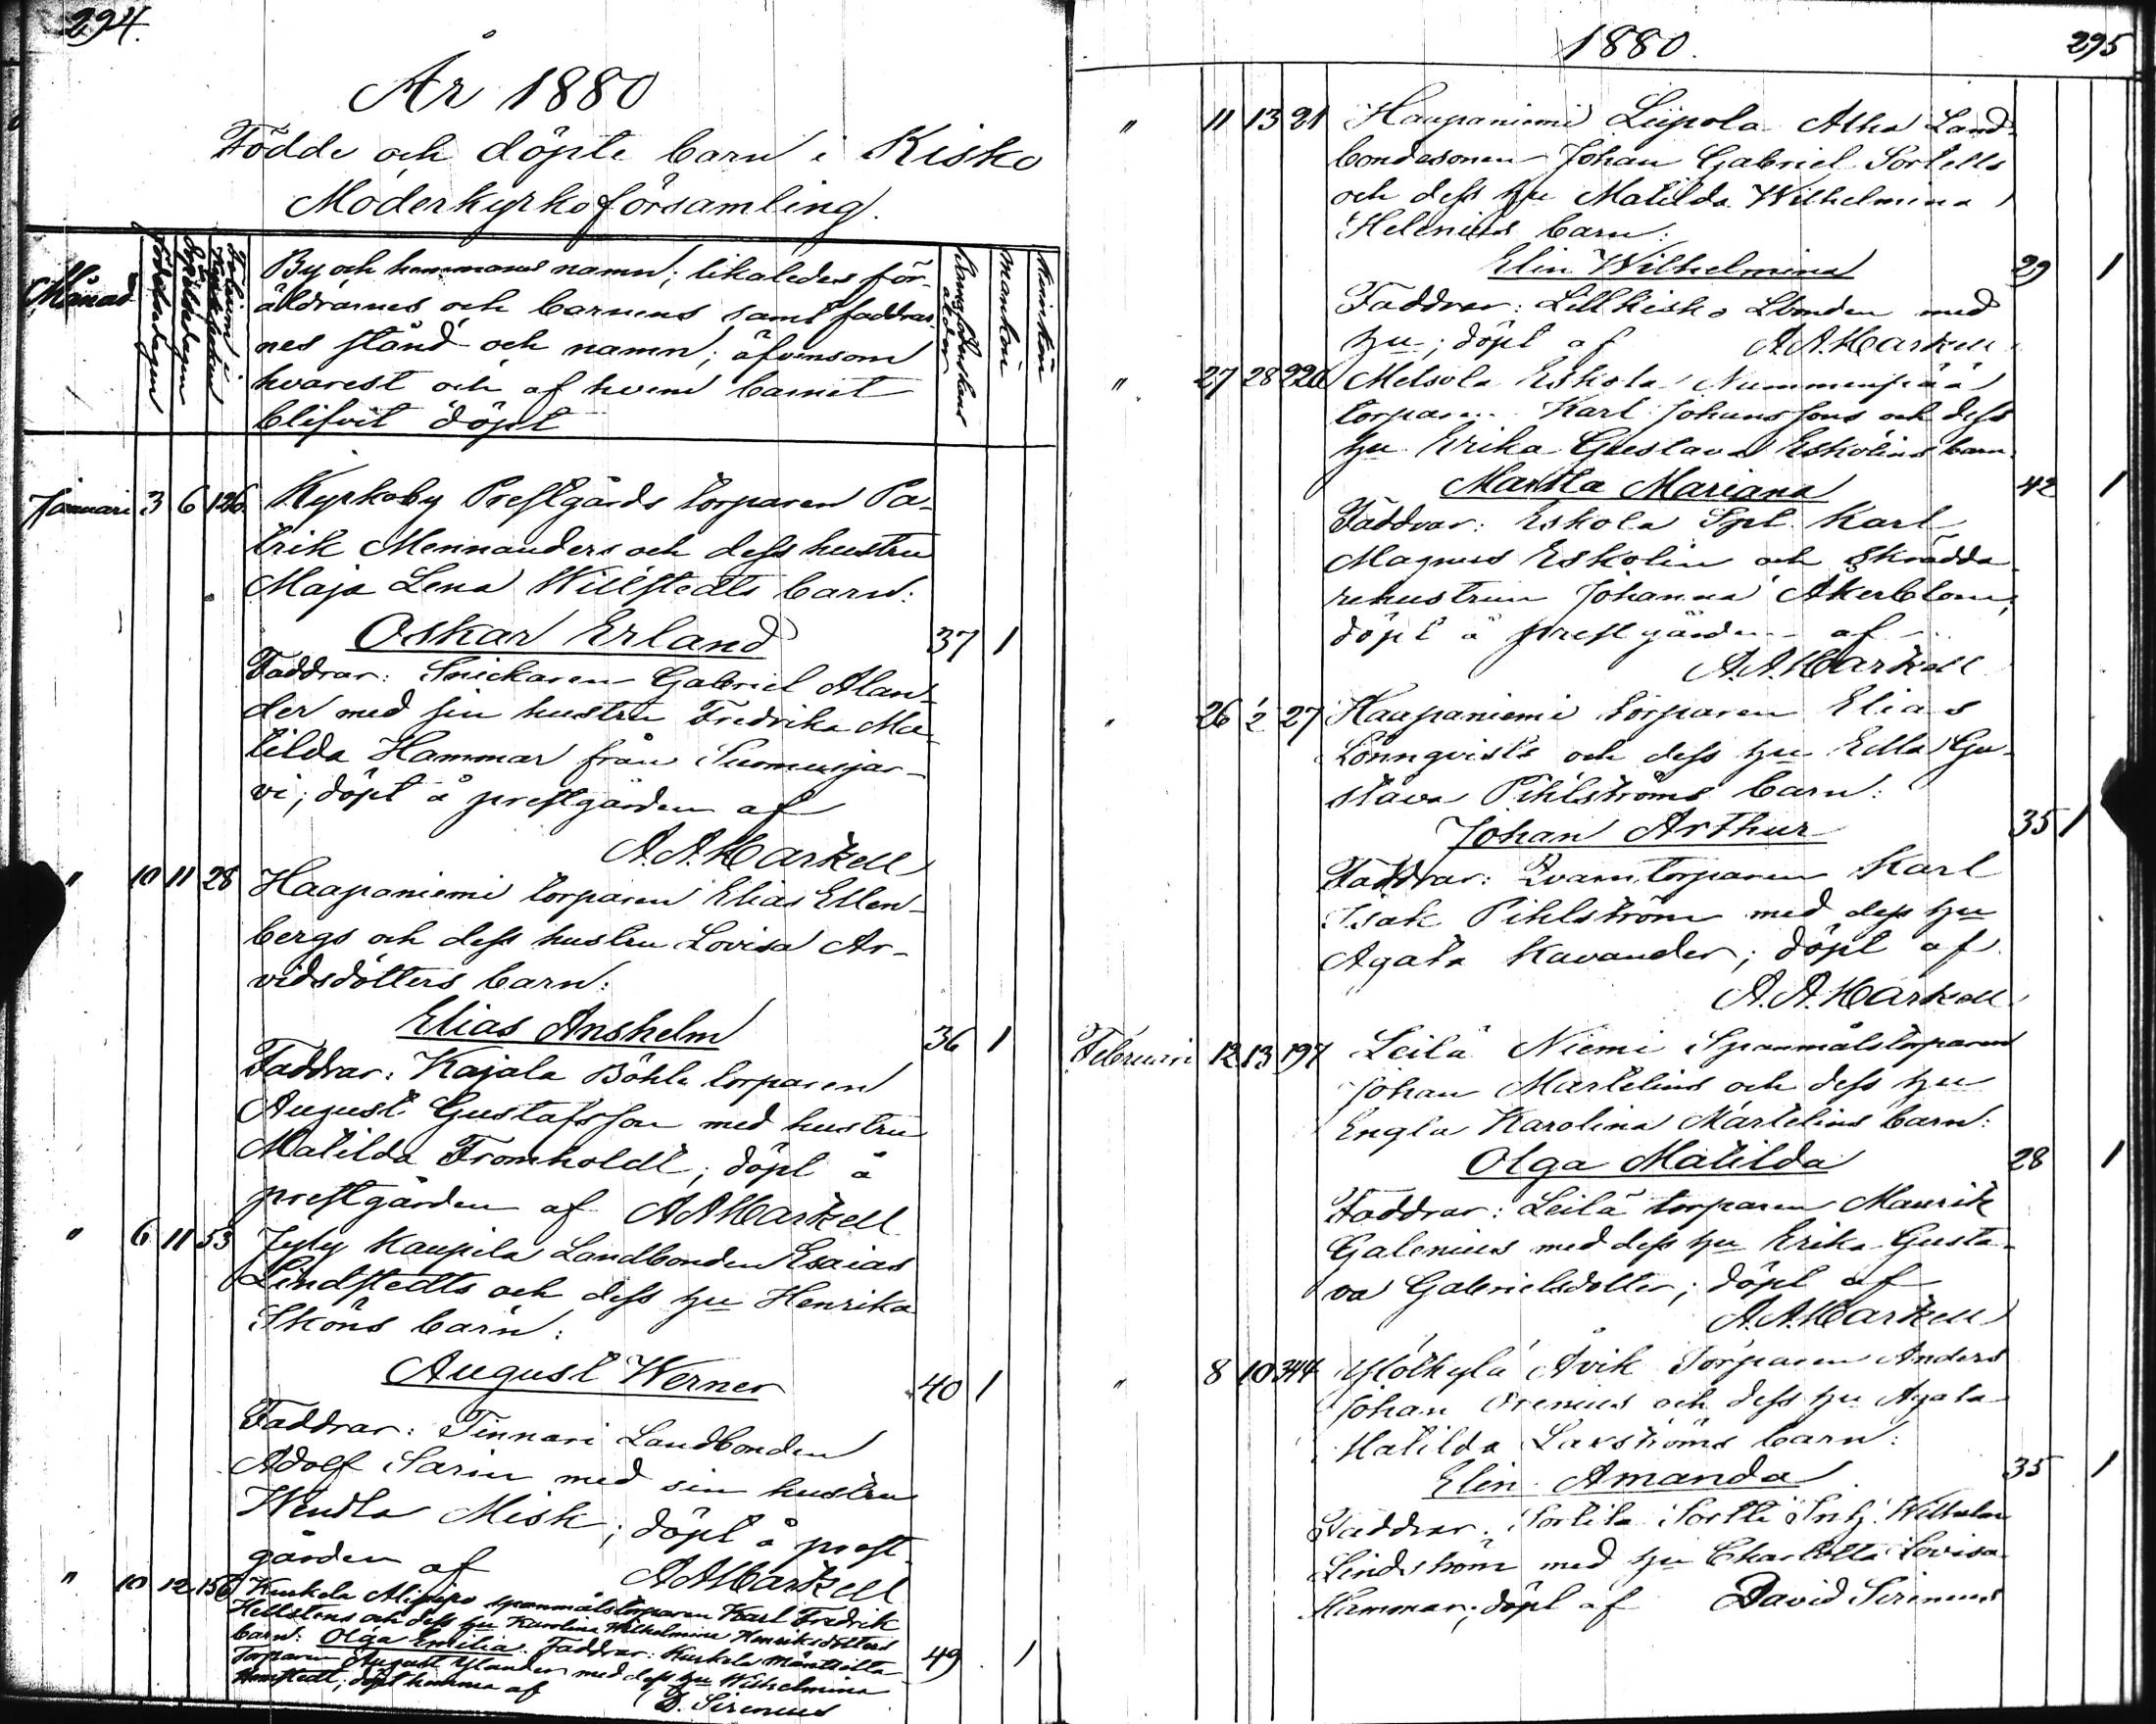 294.
År 1880
Födde och döpte barn i Kisko
Moderkyrkoförsamling.
Månad
Födelsedagen
Döpelsedagen
By och hemmanes namn; likaledes för-
äldrarnes och barnens samt faddrar-
nes stånd och namn; äfvensom
hvarest och af hvem barnet
blifvit döpt
Barnaföderskans
ålder
Mankön
Kvinkön
Januari 3 6 126 Kyrkoby Prestgårds torparen Pa-
trik Mennanders och dess hustru
Maja Lena Willstedts barn:
Oskar Erland 37 1
Faddrar: Snickaren Gabriel Alan-
der med sin hustru Fredrika Ma-
tilda Hammar från Suomusjär-
vi; döpt å prestgården af
A.A. Markell
" 10 11 28 Haapaniemi torparen Elias Ellen-
bergs och dess hustru Lovisa Ar-
vidsdotters barn:
Elias Anshelm 36 1
Faddrar: Kajala Böhle torparen
August Gustafsson med hustru
Matilda Fromholdt; döpt å
prestgården af A A Markell
" 6 11 53 Jyly Kaupila Landbonden Esaias
Lindstedts och dess hu Henrika
Sköns barn:
August Werner 40 1
Faddrar: Tinnari Landbonden
Adolf Sarin med sin hustru
Wendla Misk; döpt å prest-
gården af A A Markell
" 10 12 156 Kurkela Alipipo spanmålstorparen Karl Fredrik
Hellstens och dess hu Karolina Wilhelmina Henriksdotters
barn: Olga Emilia. Faddrar: Kurkela
Torparen August Ylander med dess hu Wilhelmina 49 1
döpt hemma af
D. Sirenius
1880. 295
" 11 13 21 Haapaniemi Liipola Land-
bondesonen Johan Gabriel Sortells
och dess hu Matilda Wilhelmina
Helenius barn:
Elin Wilhelmina 29 1
Faddrar: Lillkisko Lbonden med
hu; döpt af A.A. Markell
" 27 28 220 Metsola Eskola Nummenpää
torparen Karl Johanssons och dess
hu Erika Gustava Eskolins barn
Martta Mariana 42 1
Faddrar: Eskola Spl. Karl
Magnus Eskolin och Skrädda-
rehustrun Johanna Åkerblom;
döpt å prestgården af
A.A. Markell
" 26 ½ 27 Haapaniemi torparen Elias
Lönnqvists och dess hu Edla Gu-
stava Pihlströms barn:
Johan Arthur 35 1
Faddrar: Qvarntorparen Karl
Isak Pihlström med dess hu
Agata Kavander; döpt af
A. A. Markell
Februari 12 13 197 Leilä Niemi Spanmålstorparen
Johan Martelius och dess hu
Engla Karolina Martelius barn:
Olga Matilda 28 1
Faddrar: Leilä torparen Maurik
Galenius med dess hu Erika Gusta-
va Gabrielsdotter; döpt af
A.A. Markell
" 8 10 344 Åvik Torparen Anders
Johan och dess hu Agata
Matilda Laxströms barn:
Elin Amanda 35 1
Faddrar: Wilhelm
Lindström med hu Charlotta Lovisa
Hammar; döpt af David Sirenius